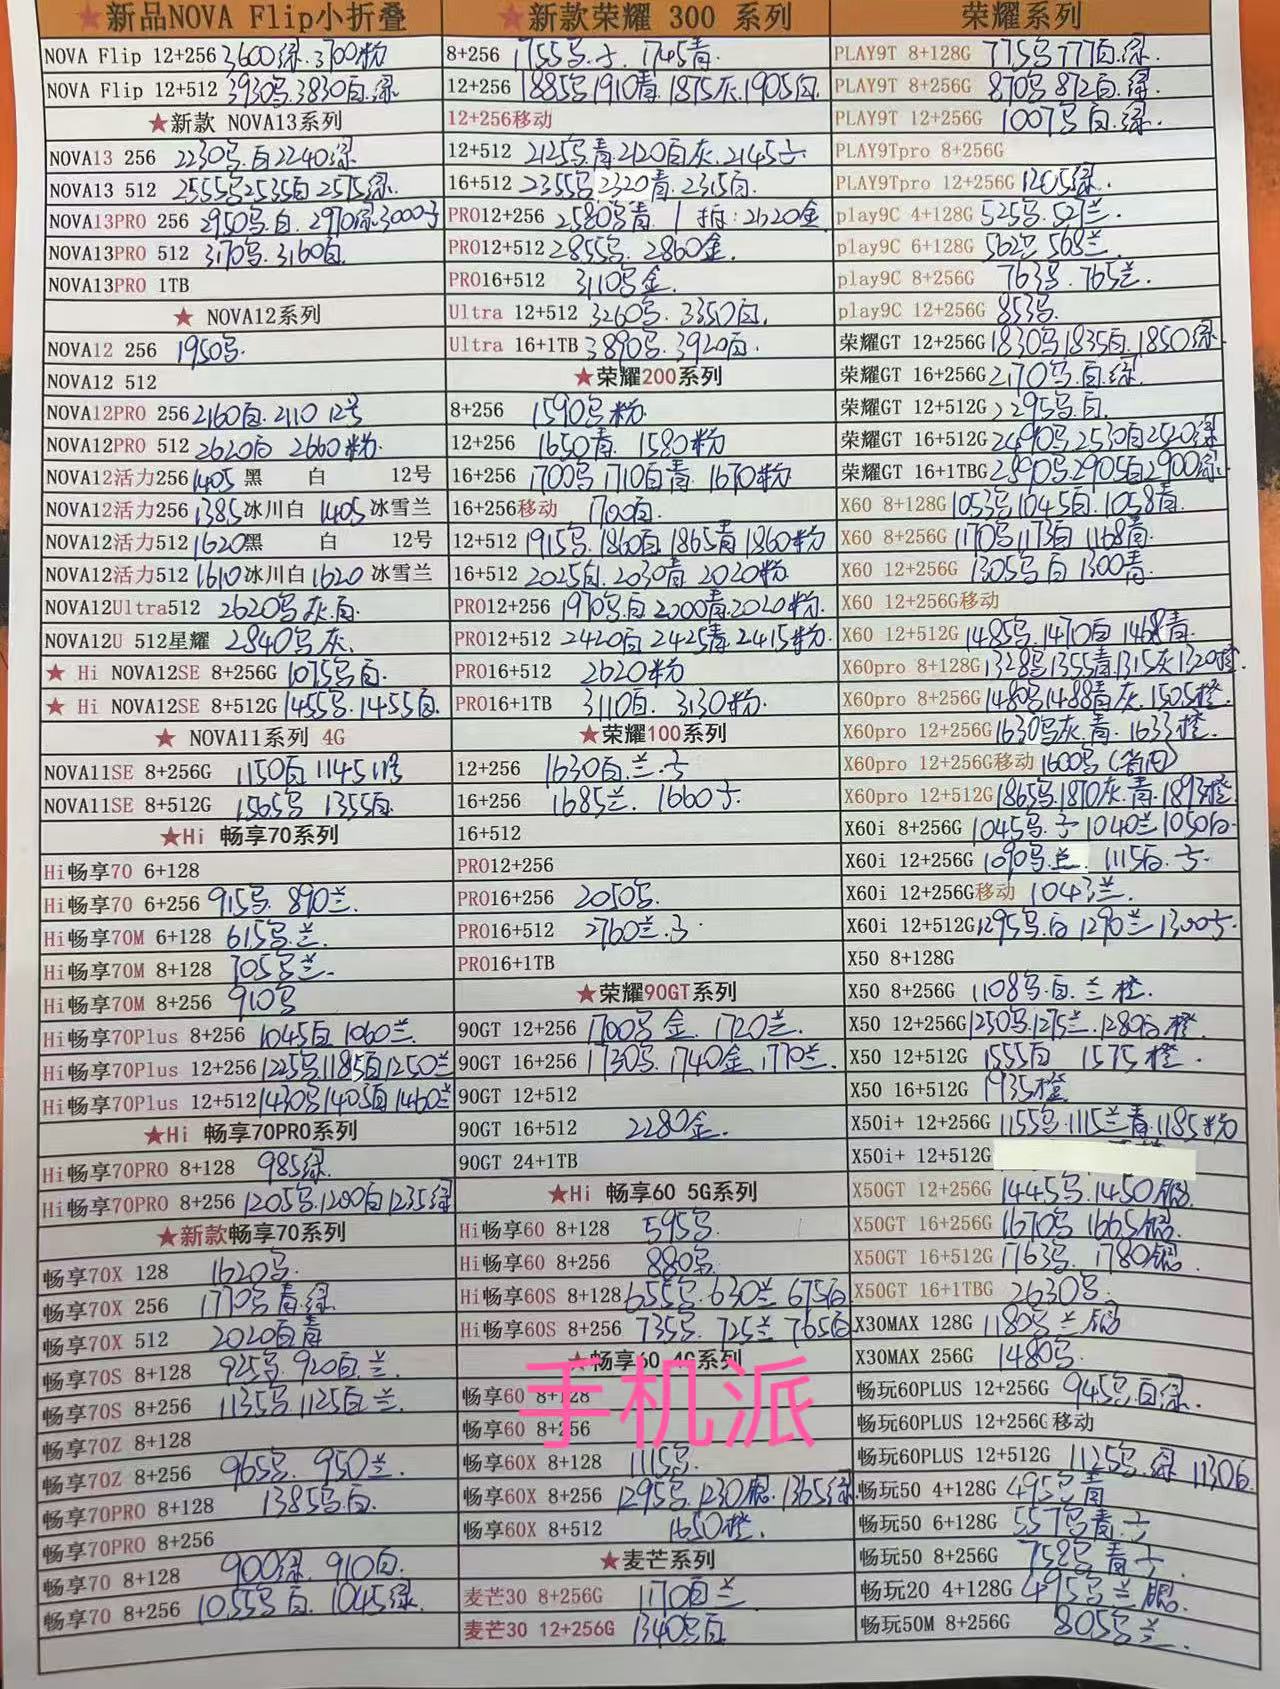 ★新品NOVA Flip小折叠
NOVA Flip 12+256 3600绿.3700粉
NOVA Flip 12+512 3930写.3830白.绿
★新款 NOVA13系列
NOVA13 256 2230写.白2240绿
NOVA13 512 2555写2535白2575绿.
NOVA13PRO 256 2950写.白. 2970绿.3000子
NOVA13PRO 512 3170写.3160白.
NOVA13PRO 1TB
★ NOVA12系列
NOVA12 256 1950写.
NOVA12 512
NOVA12PRO 256 2160白.2110 12号
NOVA12PRO 512 2620白 2660粉.
NOVA12活力256 1405 黑 白 12号
NOVA12活力256 1385冰川白 1405 冰雪兰
NOVA12活力512 1620黑 白 12号
NOVA12活力512 1610冰川白1620 冰雪兰
NOVA12Ultra512 2620写.灰.白.
NOVA12U 512星耀 2840写.灰.
★ Hi NOVA12SE 8+256G 1075写白.
★ Hi NOVA12SE 8+512G 1455写.1455白.
★ NOVA11系列 4G
NOVA11SE 8+256G 1150白 1145 11号
NOVA11SE 8+512G 1365写 1355白.
★Hi 畅享70系列
Hi畅享70 6+128
Hi畅享70 6+256 915写. 890兰.
Hi畅享70M 6+128 615写.兰.
Hi畅享70M 8+128 705写兰.
Hi畅享70M 8+256 910写
Hi畅享70Plus 8+256 1045白 1060兰.
Hi畅享70Plus 12+256 1225写1185白1250兰
Hi畅享70Plus 12+512 1430写1405白1460兰
★Hi 畅享70PRO系列
Hi畅享70PRO 8+128 985绿.
Hi畅享70PRO 8+256 1205写.1200白1235绿
★新款畅享70系列
畅享70X 128 1620写.
畅享70X 256 1770写青.绿
畅享70X 512 2020白青
畅享70S 8+128 925写. 920白.兰
畅享70S 8+256 1135写1125白兰.
畅享70Z 8+128
畅享70Z 8+256 965写. 950兰.
畅享70PRO 8+128 1385写白.
畅享70PRO 8+256
畅享70 8+128 900绿. 910白.
畅享70 8+256 1055写白. 1045绿.
★新款荣耀 300 系列
8+256 1755写.子. 1745青.
12+256 1885写1910青.1875灰.1905白.
12+256移动
12+512 2125写青2120白灰.2145子.
16+512 2355写2320青.2315白.
PRO12+256 2580写青. 1拆:2620金.
PRO12+512 2855写. 2860金.
PRO16+512 3110写金.
Ultra 12+512 3260写. 3350白.
Ultra 16+1TB 3890写.3920白.
★荣耀200系列
8+256 1590写粉.
12+256 1650青. 1580粉
16+256 1700写1710白青. 1670粉
16+256移动 1700白.
12+512 1915写.1860白1865青1860粉
16+512 2025白.2030青 2020粉.
PRO12+256 1970写.白 2000青2020粉.
PRO12+512 2420白2425青2415粉.
PRO16+512 2620粉
PRO16+1TB 3110白. 3130粉.
★荣耀100系列
12+256 1630白.兰.子
16+256 1685兰. 1660子.
16+512
PRO12+256
PRO16+256 2050写.
PRO16+512 2760兰.子.
PRO16+1TB
★荣耀90GT系列
90GT 12+256 1700写金. 1720兰.
90GT 16+256 1730写. 1740金.1770兰.
90GT 12+512
90GT 16+512 2280金.
90GT 24+1TB
★Hi 畅享60 5G系列
Hi畅享60 8+128 595写
Hi畅享60 8+256 880写.
Hi畅享60S 8+128 655写.630兰 675白
Hi畅享60S 8+256 735写. 725兰 765白
★畅享60 4G系列
畅享60 8+128
手机派
畅享60 8+256
畅享60X 8+128 1115写.
畅享60X 8+256 1295写.1230银.1365绿.
畅享60X 8+512 1650橙.
★麦芒系列
麦芒30 8+256G 1170白兰
麦芒30 12+256G 1340写白
荣耀系列
PLAY9T 8+128G 775写777白.绿.
PLAY9T 8+256G 870写 872白.绿
PLAY9T 12+256G 1007写白.绿.
PLAY9Tpro 8+256G
PLAY9Tpro 12+256G 1205绿.
play9C 4+128G 525写.527兰.
play9C 6+128G 562写.568兰.
play9C 8+256G 763写.765兰.
play9C 12+256G 853写.
荣耀GT 12+256G 1830写1835白.1850绿
荣耀GT 16+256G 2170写.白.绿.
荣耀GT 12+512G 2295写.白.
荣耀GT 16+512G 2490写.2530白2520绿
荣耀GT 16+1TBG 2890写.2905白2900绿.
X60 8+128G 1053写1045白.1058青.
X60 8+256G 1170写1173白 1168青.
X60 12+256G 1305写白1300青.
X60 12+256G移动
X60 12+512G 1485写.1470白1468青.
X60pro 8+128G 1328写1355青.1315灰1320橙.
X60pro 8+256G 1480写1488青灰.1505橙.
X60pro 12+256G 1630写灰.青.1633橙.
X60pro 12+256G移动 1600写(省内)
X60pro 12+512G 1865写.1870灰.青.1893橙.
X60i 8+256G 1045写.子1040兰1050白.
X60i 12+256G 1090写.兰. 1115白.子.
X60i 12+256G移动 1043兰.
X60i 12+512G 1295写.白 1290兰 1300子.
X50 8+128G
X50 8+256G 1108写.白.兰 橙.
X50 12+256G 1250写.1275兰.1280白橙.
X50 12+512G 1555白 1575橙.
X50 16+512G 1935橙
X50i+ 12+256G 1155写.1115兰青.1185粉
X50i+ 12+512G
X50GT 12+256G 1445写.1450银.
X50GT 16+256G 1670写 1665银.
X50GT 16+512G 1763写. 1780银.
X50GT 16+1TBG 2630写.
X30MAX 128G 1180写兰银
X30MAX 256G 1480写.
畅玩60PLUS 12+256G 945写.白绿.
畅玩60PLUS 12+256G移动
畅玩60PLUS 12+512G 1125写.绿 1130白.
畅玩50 4+128G 495写青
畅玩50 6+128G 557写青.子
畅玩50 8+256G 752写青子.
畅玩20 4+128G 495写兰 银.
畅玩50M 8+256G 805写兰.